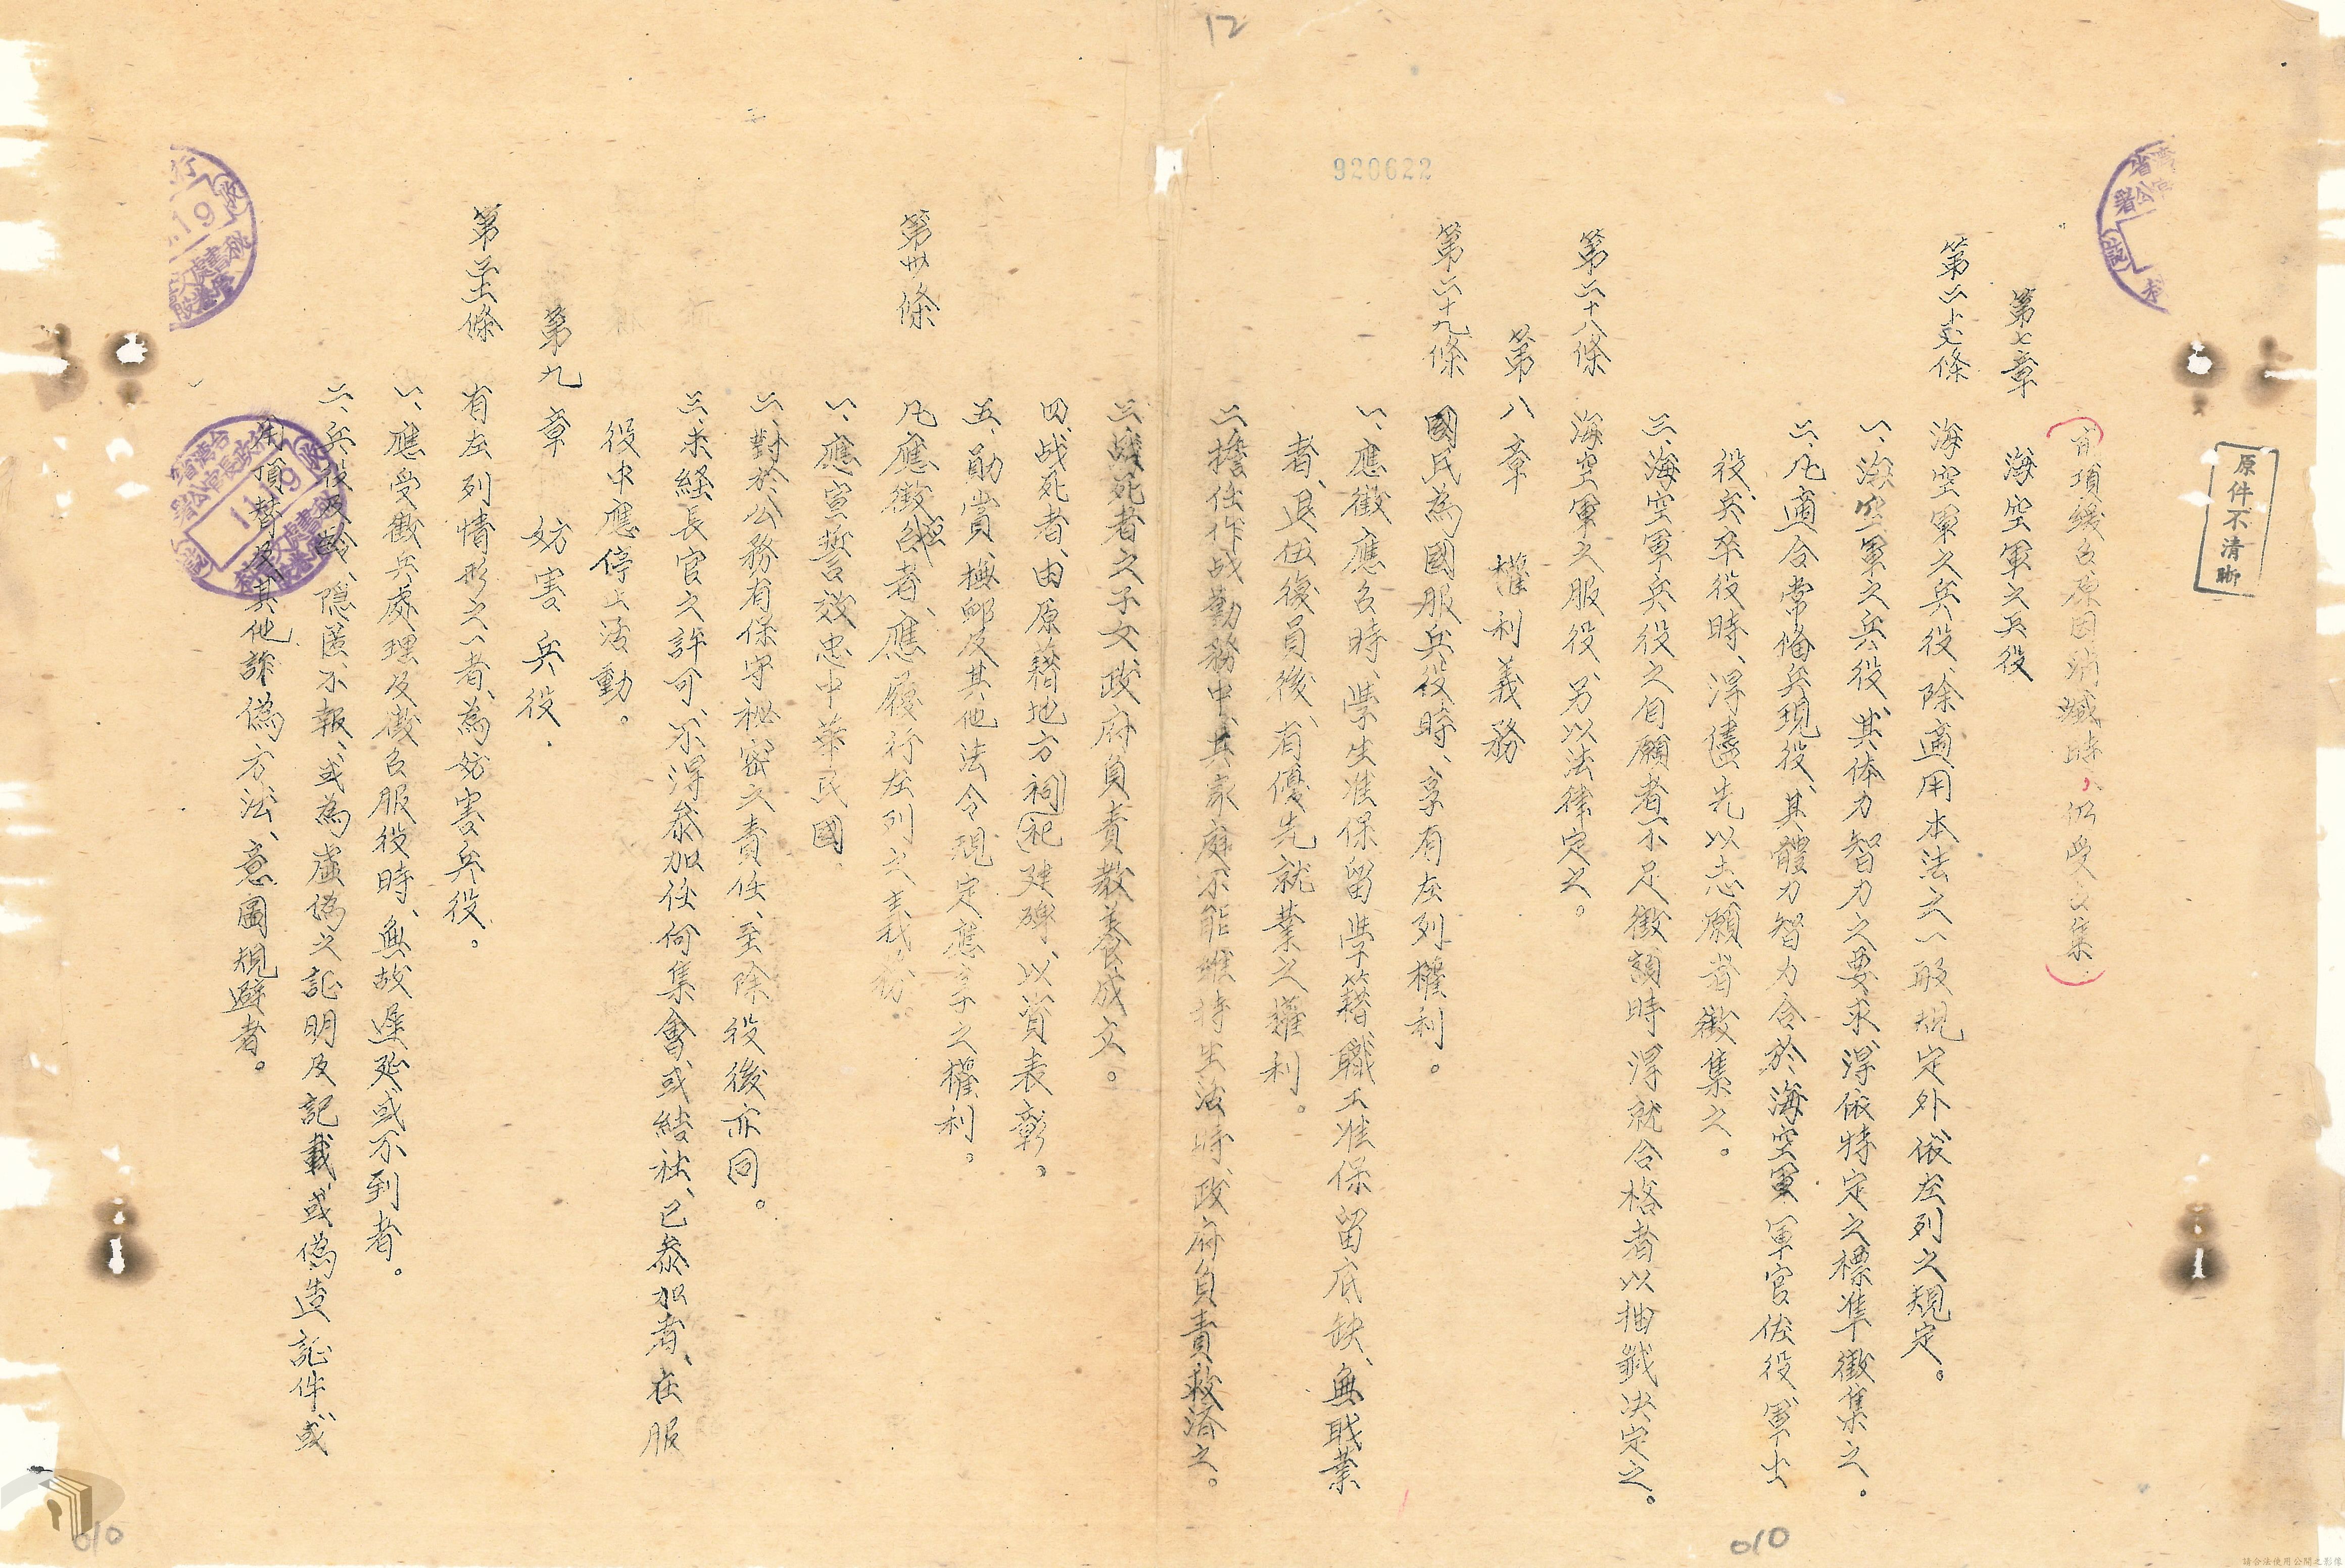 12
920622
原件不清晰
前項緩召原因消滅時,仍受召集
第七章 海空軍之兵役
第二十七條 海空軍之兵役、除適用本法之一般規定外、依左列之規定。
一、海空軍之兵役、其体力智力之要求、得依特定之標準徵集之。
二、凡適合常備兵現役、其體力智力合於海空軍軍官佐役、軍士
役、兵卒役時、得儘先以志願者徵集之。
三、海空軍兵役之自願者不足徵額時、得就合格者以抽籤決定之。
第二十八條 海空軍之服役、另以法律定之。
第八章 權利義務
第二十九條 國民為國服兵役時、享有左列權利。
一、應徵應召時、學生准保留學籍、職工准保留底缺、無職業
者、退伍復員後、有優先就業之權利。
二、擔任作战勤務中、其家庭不能維持生活時、政府負責救済之。
三、战死者之子女政府負責教養成文。
四、战死者、由原籍地方祠祀建碑、以資表彰。
五、勛賞、撫卹及其他法令規定應享之權利。
第卅條 凡應徵召者、應履行左列之義務。
一、應宣誓效忠中華民國
二、對於公務有保守祕密之責任、至除役後亦同。
三、未経長官之許可、不得叅加任何集會或結社、已叅加者、在服
役中應停止活動。
第九章 妨害兵役.
第卅一條 有左列情形之一者、為妨害兵役。
一、應受徵兵處理及徵召服役時、無故遲延或不到者。
二、兵役及齡、隱匿不報、或為虛偽之証明及記載、或偽造証件、或
用頂替及其他詐偽方法、意圖規避者。
台灣省行政長官公署
11.19
010
010
請合法使用公開之影像